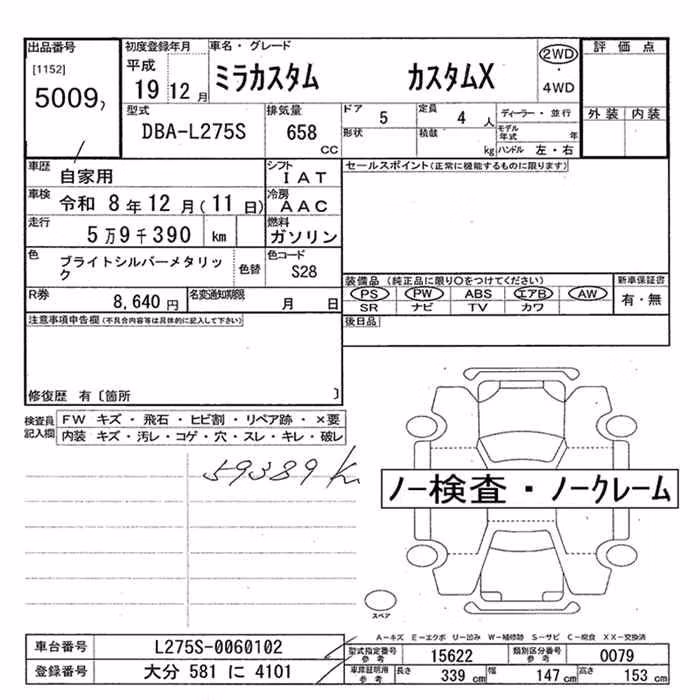 出品番号 初度登録年月 車名・グレード 2WD 評価点
[1152] 平成 ミラカスタム カスタムX ・
5009 19 12 月 4WD
型式 排気量 ドア 5 定員 4 人 ディーラー・並行 外装 内装
DBA-L275S 658 CC 形状 積載 kg モデル年式 年
ハンドル 左・右
車歴 自家用 シフト IAT セールスポイント(正常に機能するものに限ります)
車検 令和 8年 12月(11日) 冷房 AAC
走行 5万9千390 km 燃料 ガソリン
色 ブライトシルバーメタリック 色替 色コード S28
装備品 (純正品に限り○をつけてください) 新車保証書
R券 8,640 円 名変通知期限 月 日 PS PW ABS エアB AW 有・無
SR ナビ TV カワ
注意事項申告欄(不具合内容等は具体的に記入して下さい) 後日品
修復歴 有〔箇所 〕
検査員記入欄 FW キズ・飛石・ヒビ割・リペア跡・×要
内装 キズ・汚レ・コゲ・穴・スレ・キレ・破レ
59389 km
ノー検査・ノークレーム
スペア
A-キズ E-エクボ U-凹み W-補修跡 S-サビ C-腐食 XX-交換済
車台番号 L275S-0060102 型式指定番号参考 15622 類別区分番号参考 0079
登録番号 大分 581 に 4101 車庫証明用参考 長さ 339 cm 幅 147 cm 高さ 153 cm